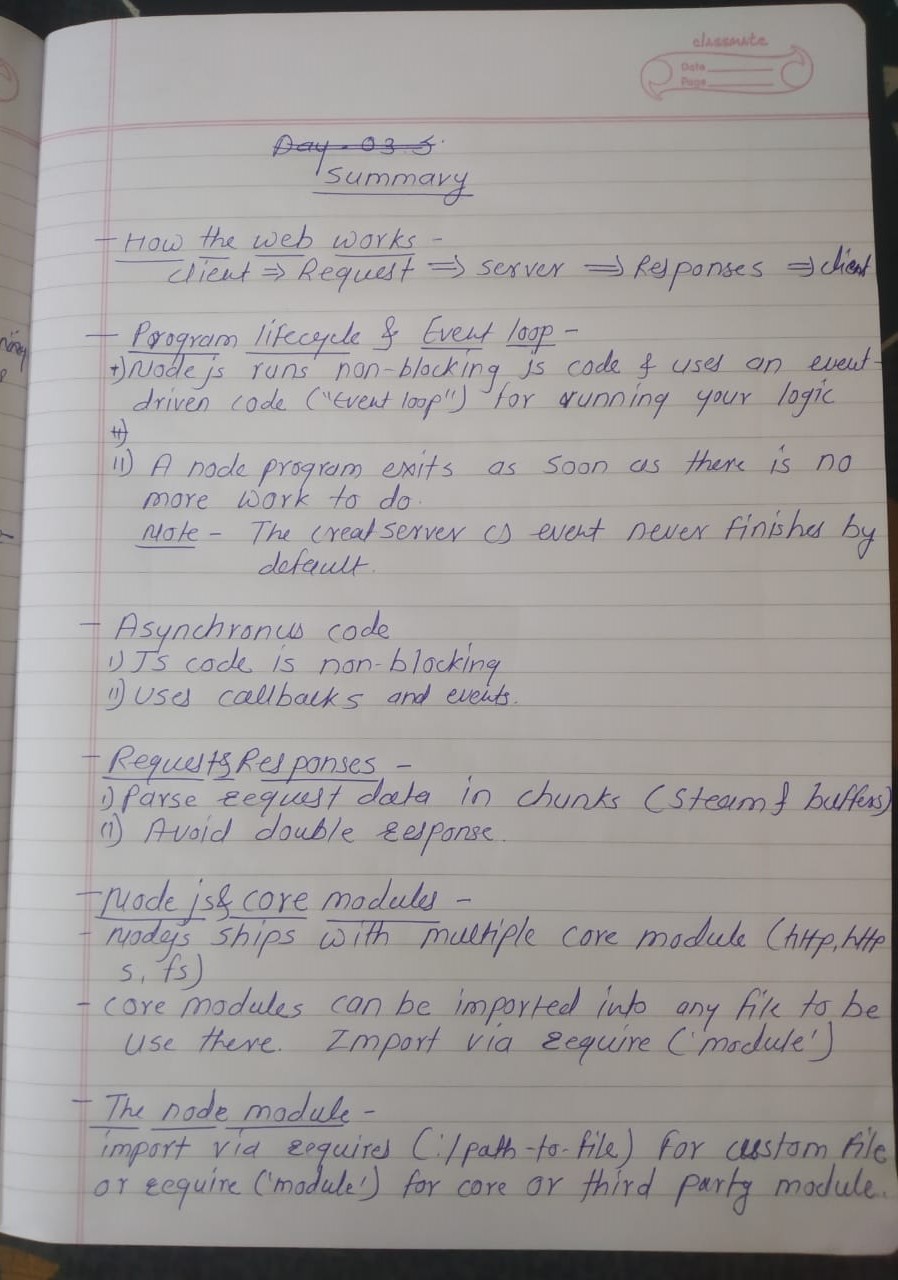 classmate
Date
Page
Day - 03
Summary
- How the web works -
client ⇒ Request ⇒ server ⇒ Responses ⇒ client
- Program lifecycle & Event loop -
i) Node js runs non-blocking js code & uses an event-
driven code ("Event loop") for running your logic
ii)
ii) A node program exits as soon as there is no
more work to do.
Note - The creatServer () event never finishes by
default.
- Asynchronus code
i) JS code is non-blocking
ii) Uses callbacks and events.
- Requests & Responses -
i) Parse request data in chunks (Steam & buffers)
ii) Avoid double response.
- Node js & core modules -
- Nodejs ships with multiple core module (http, http
s, fs)
- core modules can be imported into any file to be
use there. Import via require ('module')
- The node module -
import via requires (./path-to-file) for custom file
or require ('module') for core or third party module.